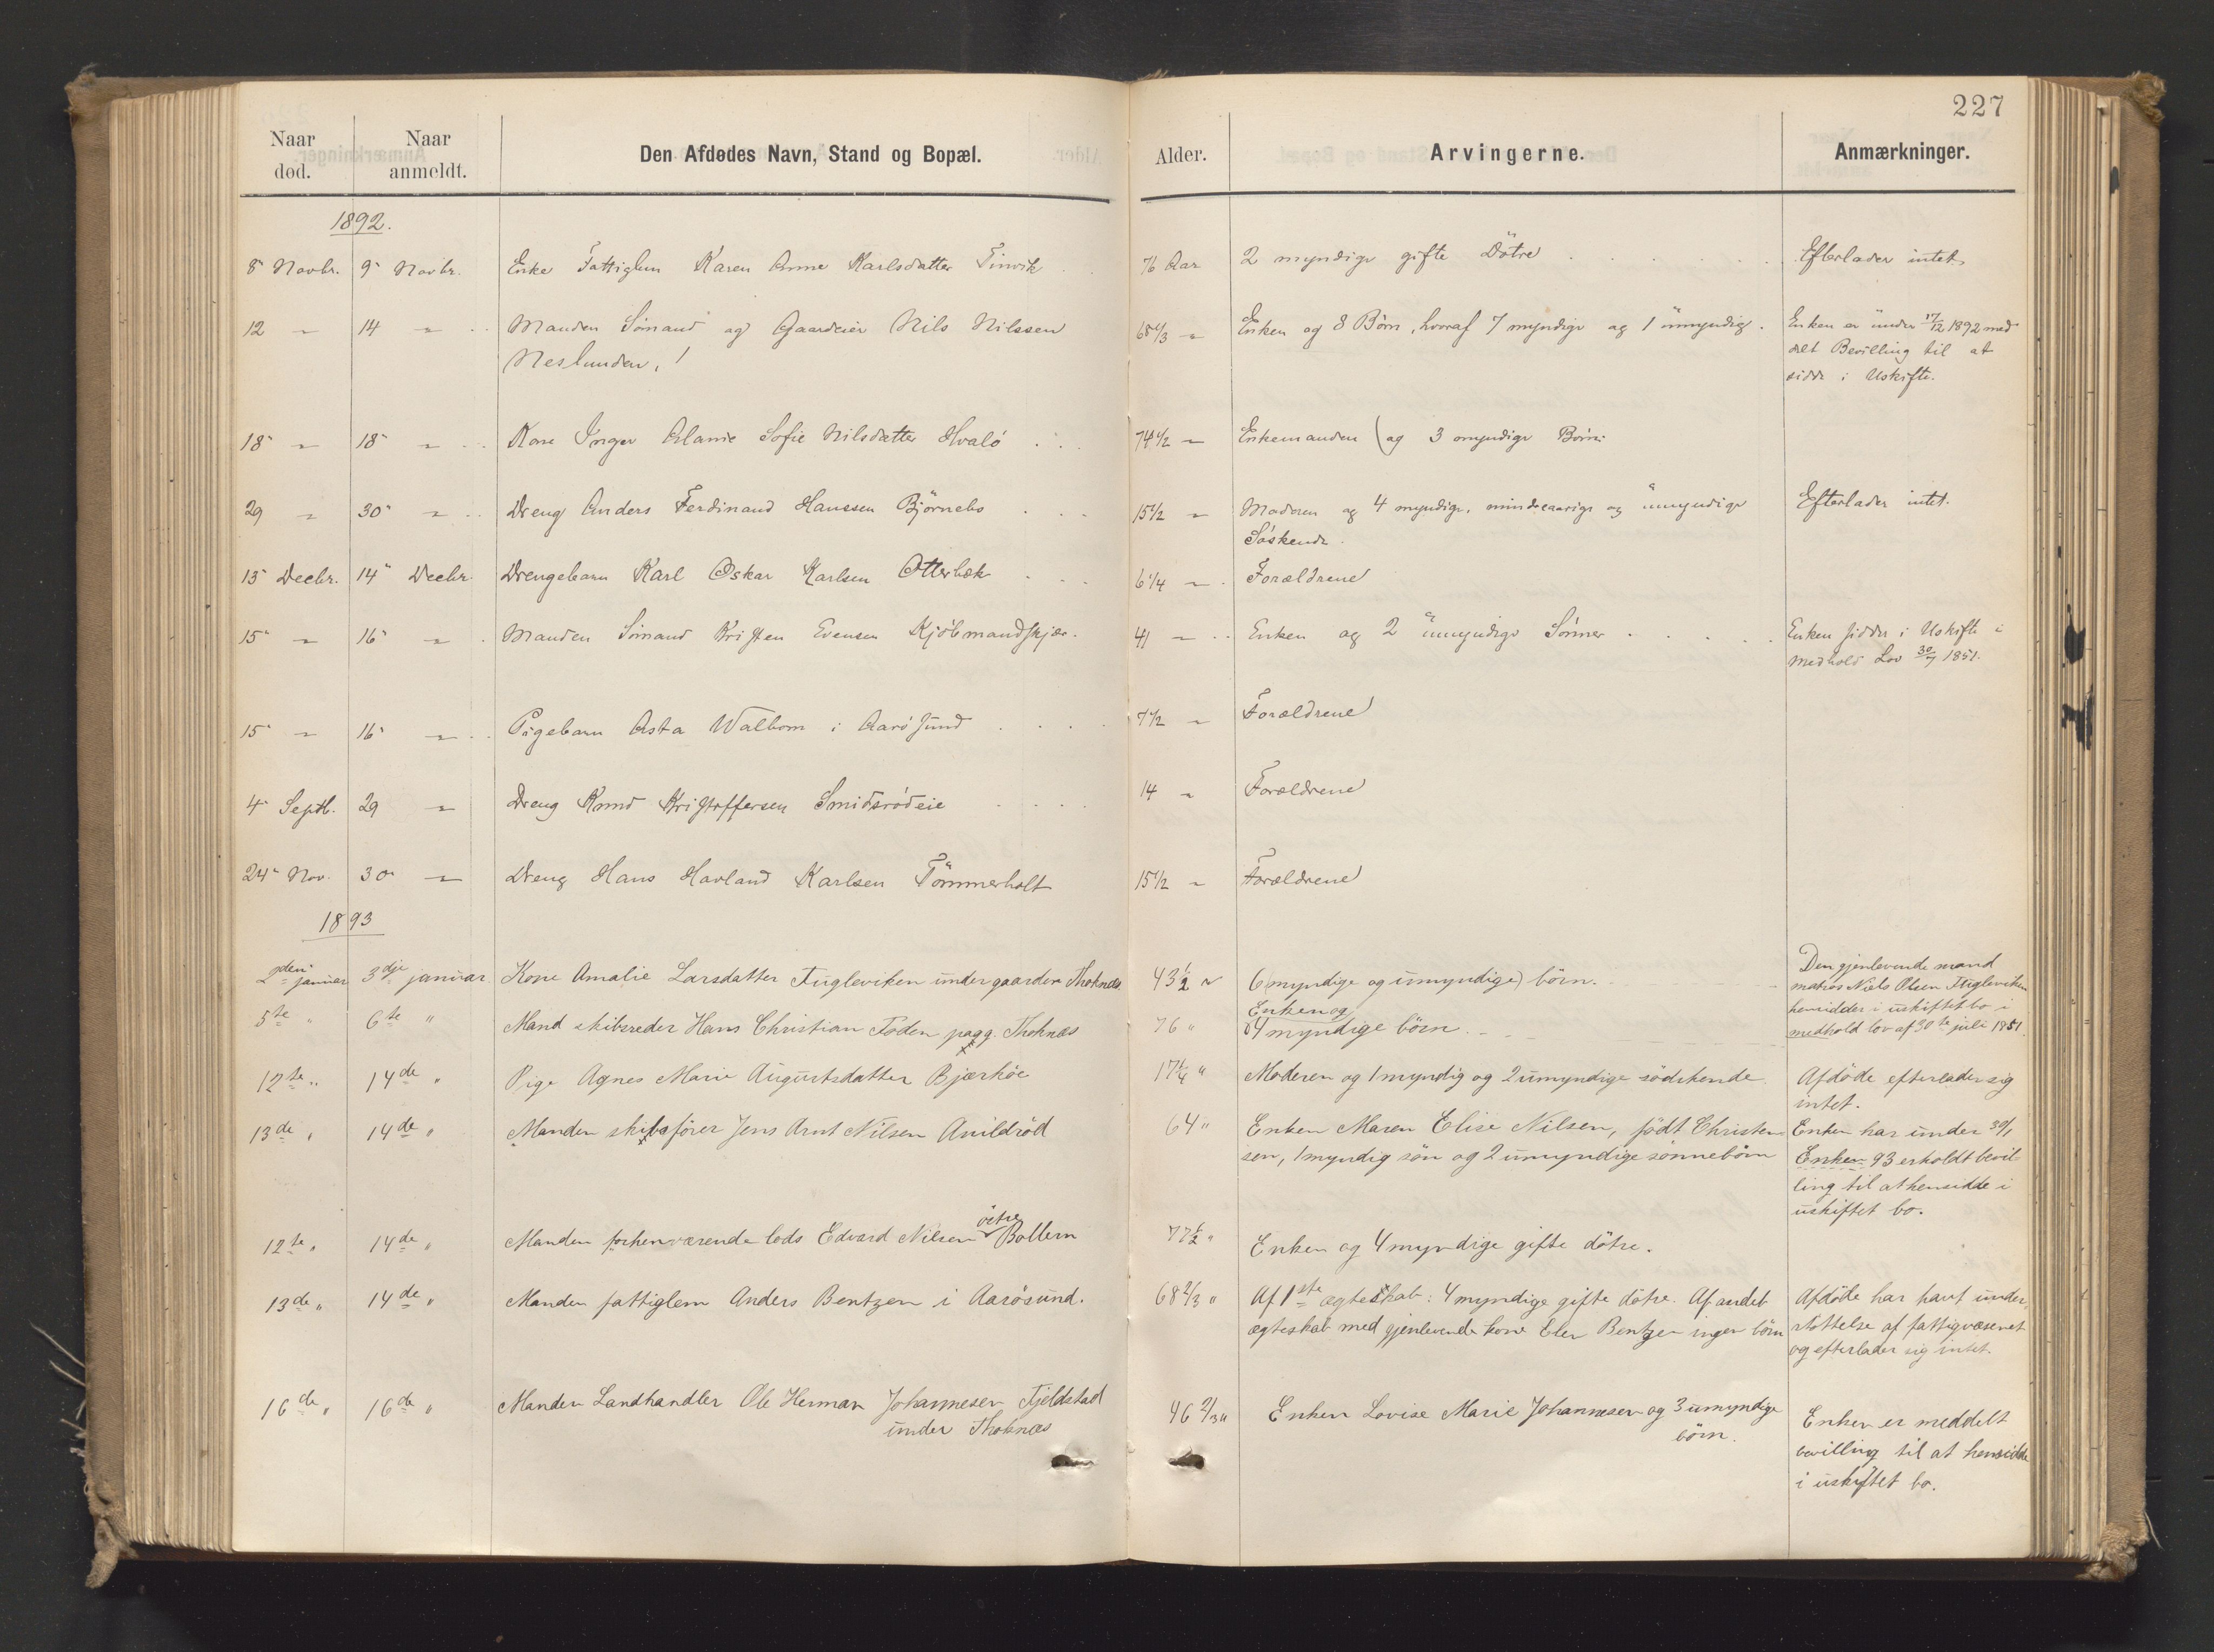 227
Naar død.
Naar anmeldt.
Den Afdødes Navn, Stand og Bopæl.
Alder.
Arvingerne.
Anmærkninger.
1892.
8 Novbr. 9 Novbr. Enke Fattiglem Karen Anne Karlsdatter Finvik 76 Aar 2 myndige gifte Døtre Efterlader intet
12 " 14 " Manden Sømand og Gaardeier Nils Nilssen 68 1/3 " Enken og 8 Børn, hvoraf 7 myndige og 1 umyndig. Enken er under 17/12 1892 med
Neslunden,
delt Bevilling til at
sidde i Uskifte.
18 " 18 " Kone Inger Sofie Nilsdatter Hvalö 74 1/2 " Enkemanden og 3 omyndige Børn
29 " 30 " Dreng Anders Ferdinand Hanssen Björnebo 15 1/2 " Moderen og 4 myndige, mindreaarige og umyndige Efterlader intet.
Søskende.
13 Decbr. 14 Decbr. Drengebarn Karl Oskar Karlsen Otterbek 6 1/4 " Forældrene
15 " 16 " Manden Sömand Kristen Evensen Kjöbmandskjær. 41 " Enken og 2 umyndige Sönner Enken sidder i Uskifte i
Medhold Lov 30/7 1851.
15 " 16 " Pigebarn Asta Walbom i Aarösund 7 1/2 " Forældrene
4 Septb. 29 " Dreng Knud Kristoffersen Smidsrödeie 14 " Forældrene
24 Nov. 30 " Dreng Hans Havland Karlsen Tömmerholt 15 1/2 " Forældrene
1893
2den januar 3dje januar Kone Amalie Larsdatter Fugleviken under gaarden Thoknæs 43 1/2 " 6 myndige og umyndige börn. Den gjenlevende mand
matros Niels Olsen Fugleviken
hensidder i uskiftet bo i
medhold lov af 30te juli 1851.
5te " 6te " Mand skibsreder Hans Christian Foden paa g. Thoknæs 76 " Enken og 4 myndige börn.
12te " 14de " Pige Agnes Marie Augustsdatter Bjerköe 17 1/4 " Moderen og 1 myndig og 2 umyndige södskende Afdöde efterlader sig
intet.
13de " 14de " Manden skibsförer Jens Arnt Nilsen Avildröd 64 " Enken Maren Elise Nilsen, födt Christen Enken har under 30/1
sen, 1 myndig sön og 2 umyndige sönnebörn Enken 93 erholdt bevil
ling til at hensidde i
uskiftet bo.
12te " 14de " Manden forhenværende lods Edvard Nilsen östre Bollern 77 1/2 " Enken og 4 myndige gifte dötre.
13de " 14de " Manden fattiglem Anders Bentzen i Aarösund. 68 2/3 " Af 1ste ægteskab: 4 myndige gifte dötre. Af andet Afdöde har havt under
ægteskab med gjenlevende kone Elen Bentzen ingen börn støttelse af fattigvæsenet
og efterlader sig intet.
16de " 16de " Manden Landhandler Ole Herman Johannesen Fjeldstad 46 2/3 " Enken Lovise Marie Johannesen og 3 umyndige Enken er meddelt
under Thoknæs börn. bevilling til at hensidde
i uskiftet bo.